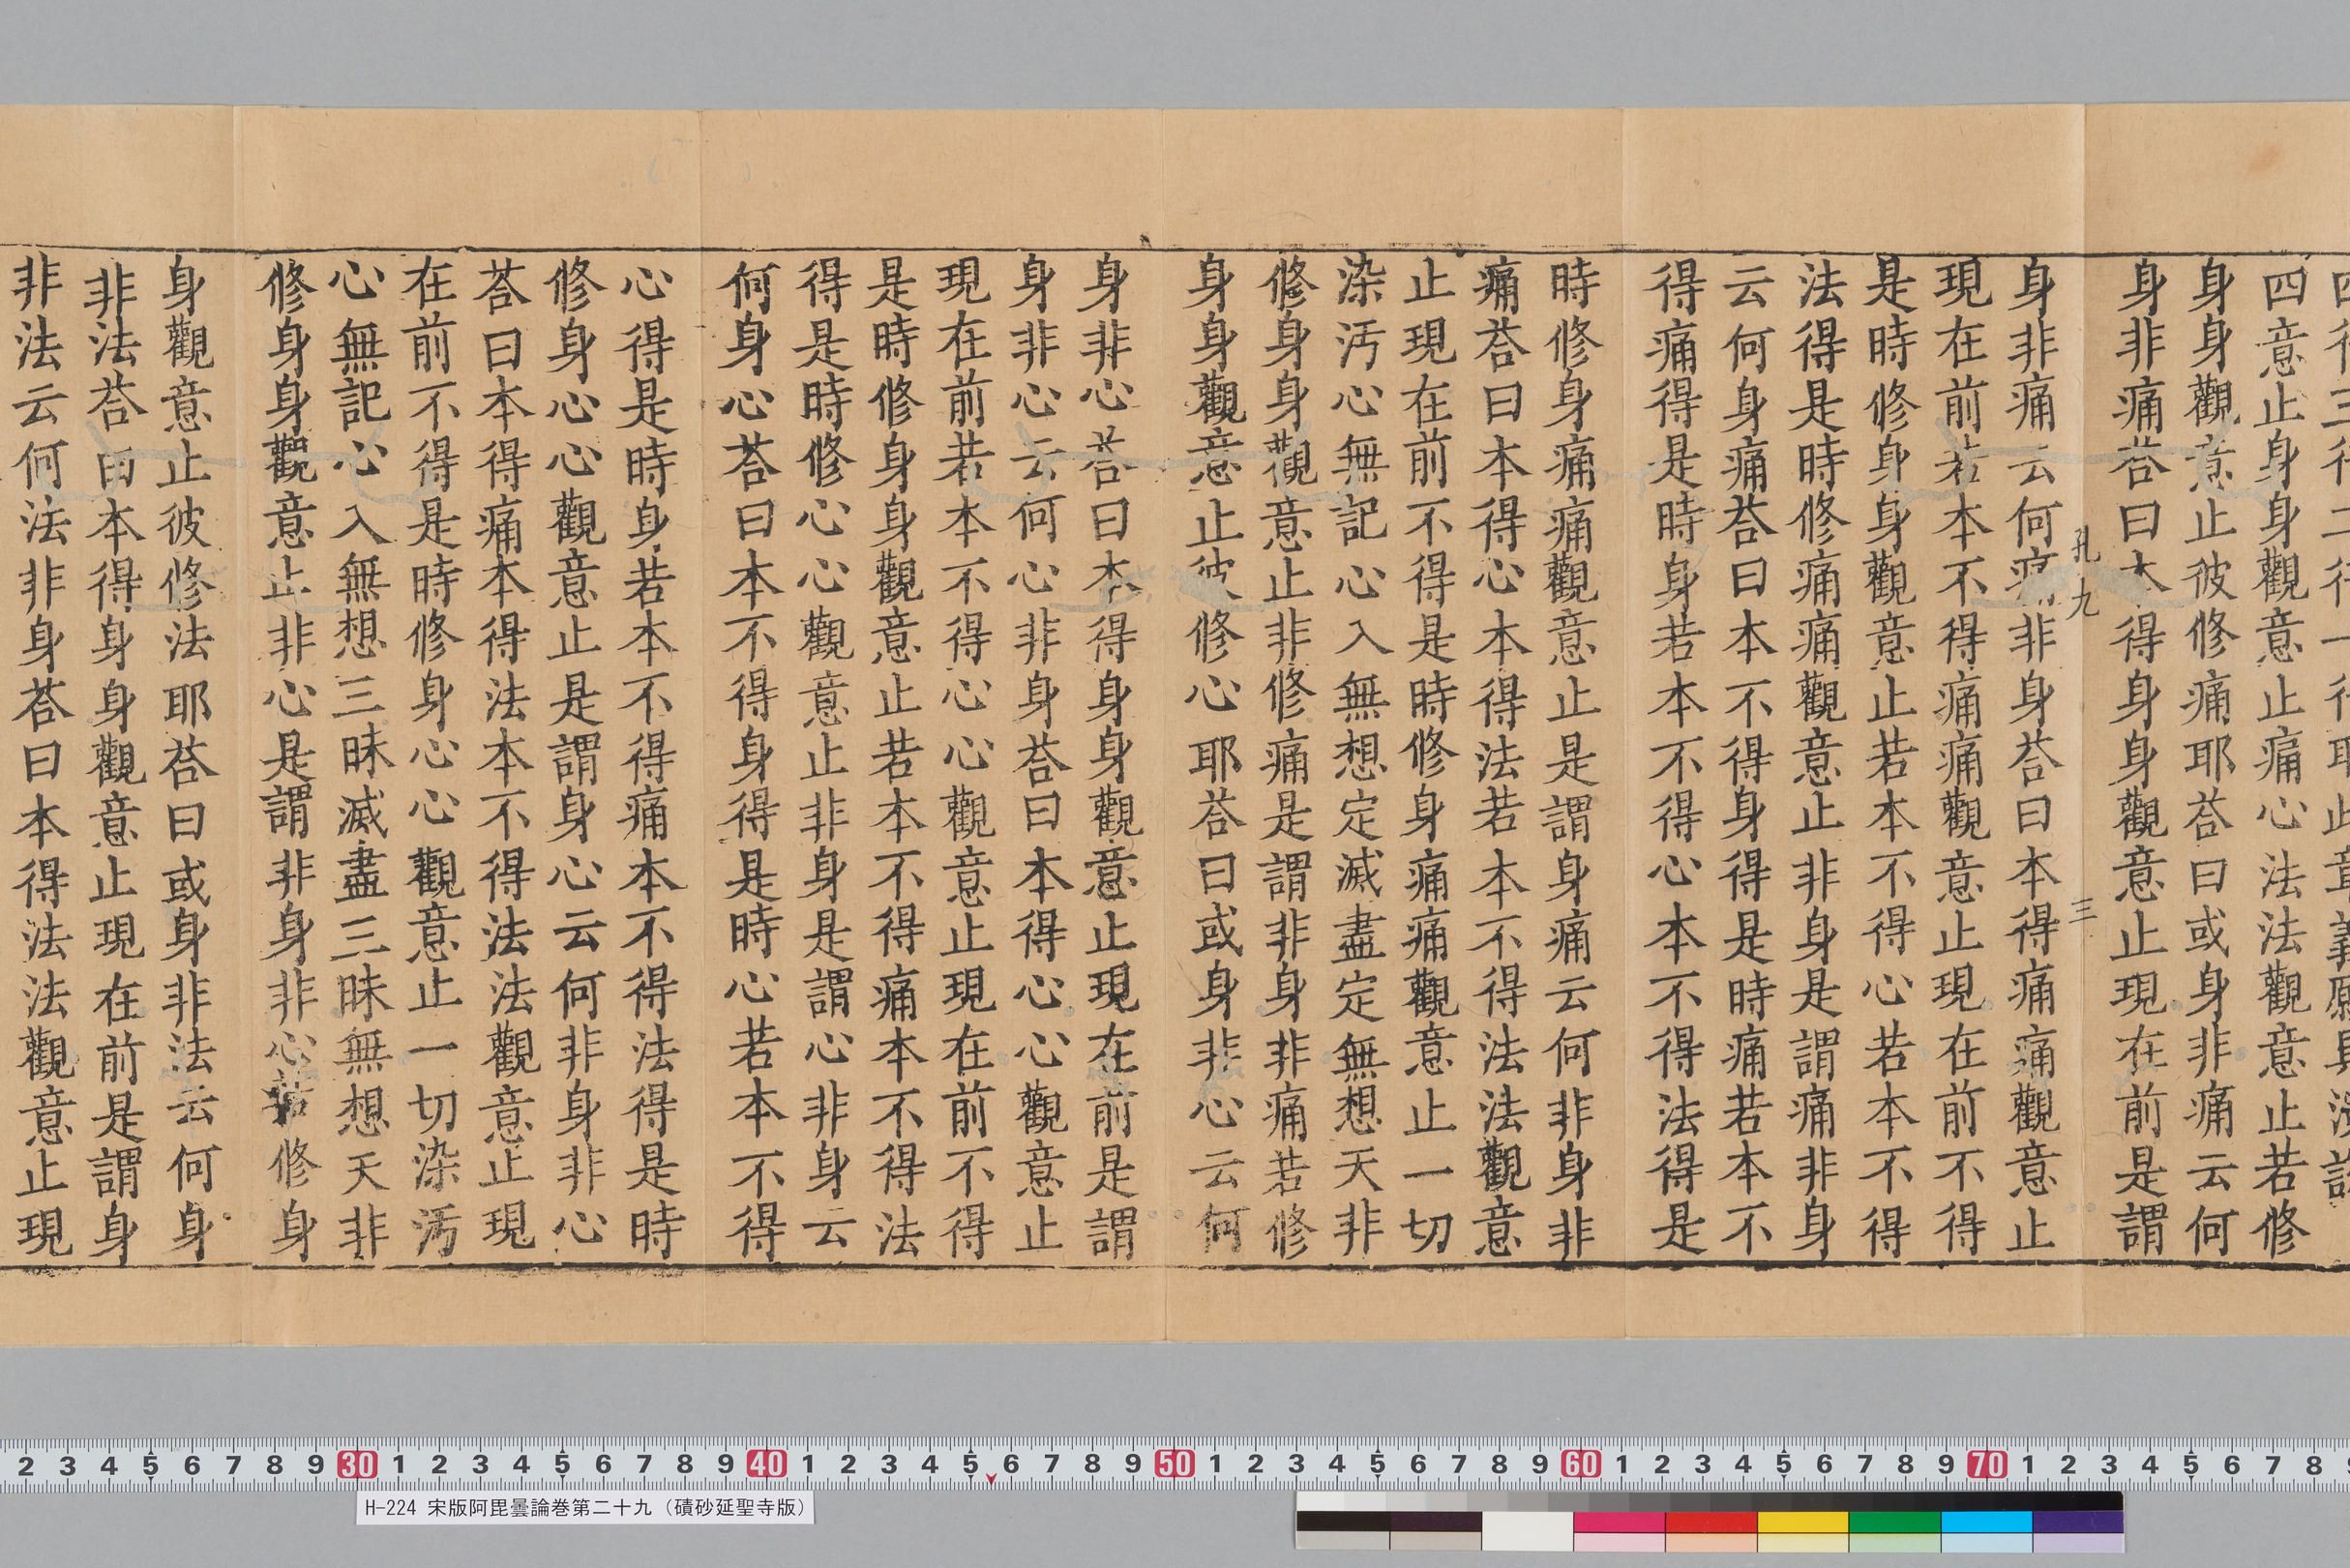 四行三行二行一行耶此章義願具演說
四意止身身觀意止痛心法法觀意止若修
身身觀意止彼修痛耶荅曰或身非痛云何
身非痛荅曰本得身身觀意止現在前是謂
孔九 三
身非痛云何痛非身荅曰本得痛痛觀意止
現在前若本不得痛痛觀意止現在前不得
是時修身身觀意止若本不得心若本不得
法得是時修痛痛觀意止非身是謂痛非身
云何身痛荅曰本不得身得是時痛若本不
得痛得是時身若本不得心本不得法得是
時修身痛痛觀意止是謂身痛云何非身非
痛荅曰本得心本得法若本不得法法觀意
止現在前不得是時修身痛痛觀意止一切
染汚心無記心入無想定滅盡定無想天非
修身身觀意止非修痛是謂非身非痛若修
身身觀意止彼修心耶荅曰或身非心云何
身非心荅曰本得身身觀意止現在前是謂
身非心云何心非身荅曰本得心心觀意止
現在前若本不得心心觀意止現在前不得
是時修身身觀意止若本不得痛本不得法
得是時修心心觀意止非身是謂心非身云
何身心荅曰本不得身得是時心若本不得
心得是時身若本不得痛本不得法得是時
修身心心觀意止是謂身心云何非身非心
荅曰本得痛本得法本不得法法觀意止現
在前不得是時修身心心觀意止一切染汚
心無記心入無想三昧滅盡三昧無想天非
修身身觀意止非心是謂非身非心若修身
身觀意止彼修法耶荅曰或身非法云何身
非法荅曰本得身身觀意止現在前是謂身
非法云何法非身荅曰本得法法觀意止現
2 3 4 5 6 7 8 9 30 1 2 3 4 5 6 7 8 9 40 1 2 3 4 5 6 7 8 9 50 1 2 3 4 5 6 7 8 9 60 1 2 3 4 5 6 7 8 9 70 1 2 3 4 5 6 7 8
H-224 宋版阿毘曇論巻第二十九（磧砂延聖寺版）